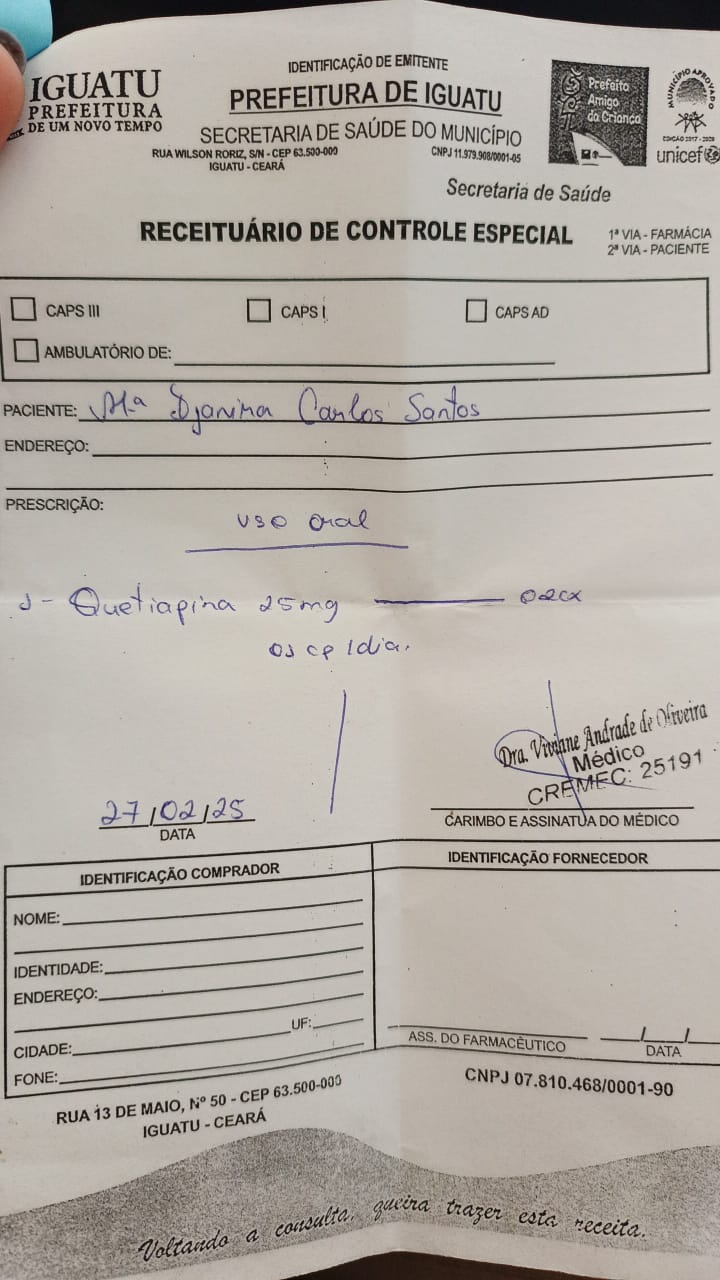 IGUATU
PREFEITURA
DE UM NOVO TEMPO
IDENTIFICAÇÃO DE EMITENTE
PREFEITURA DE IGUATU
SECRETARIA DE SAÚDE DO MUNICÍPIO
RUA WILSON RORIZ, S/N - CEP 63.500-000
IGUATU - CEARÁ
CNPJ 11.979.908/0001-05
Prefeito
Amigo
da Criança
MUNICÍPIO APROVADO
EDIÇÃO 2017 - 2020
unicef
Secretaria de Saúde
RECEITUÁRIO DE CONTROLE ESPECIAL
1ª VIA - FARMÁCIA
2ª VIA - PACIENTE
CAPS III
CAPS I
CAPS AD
AMBULATÓRIO DE:
PACIENTE: Mª Djanira Carlos Santos
ENDEREÇO:
PRESCRIÇÃO:
USO oral
1- Quetiapina 25mg 02cx
01 cp / dia.
Dra. Viviane Andrade de Oliveira
Médico
CREMEC: 25191
27/02/25
DATA
CARIMBO E ASSINATUA DO MÉDICO
IDENTIFICAÇÃO COMPRADOR
NOME:
IDENTIDADE:
ENDEREÇO:
UF:
CIDADE:
FONE:
IDENTIFICAÇÃO FORNECEDOR
ASS. DO FARMACÊUTICO
/ /
DATA
RUA 13 DE MAIO, Nº 50 - CEP 63.500-000
IGUATU - CEARÁ
CNPJ 07.810.468/0001-90
Voltando a consulta, queira trazer esta receita.